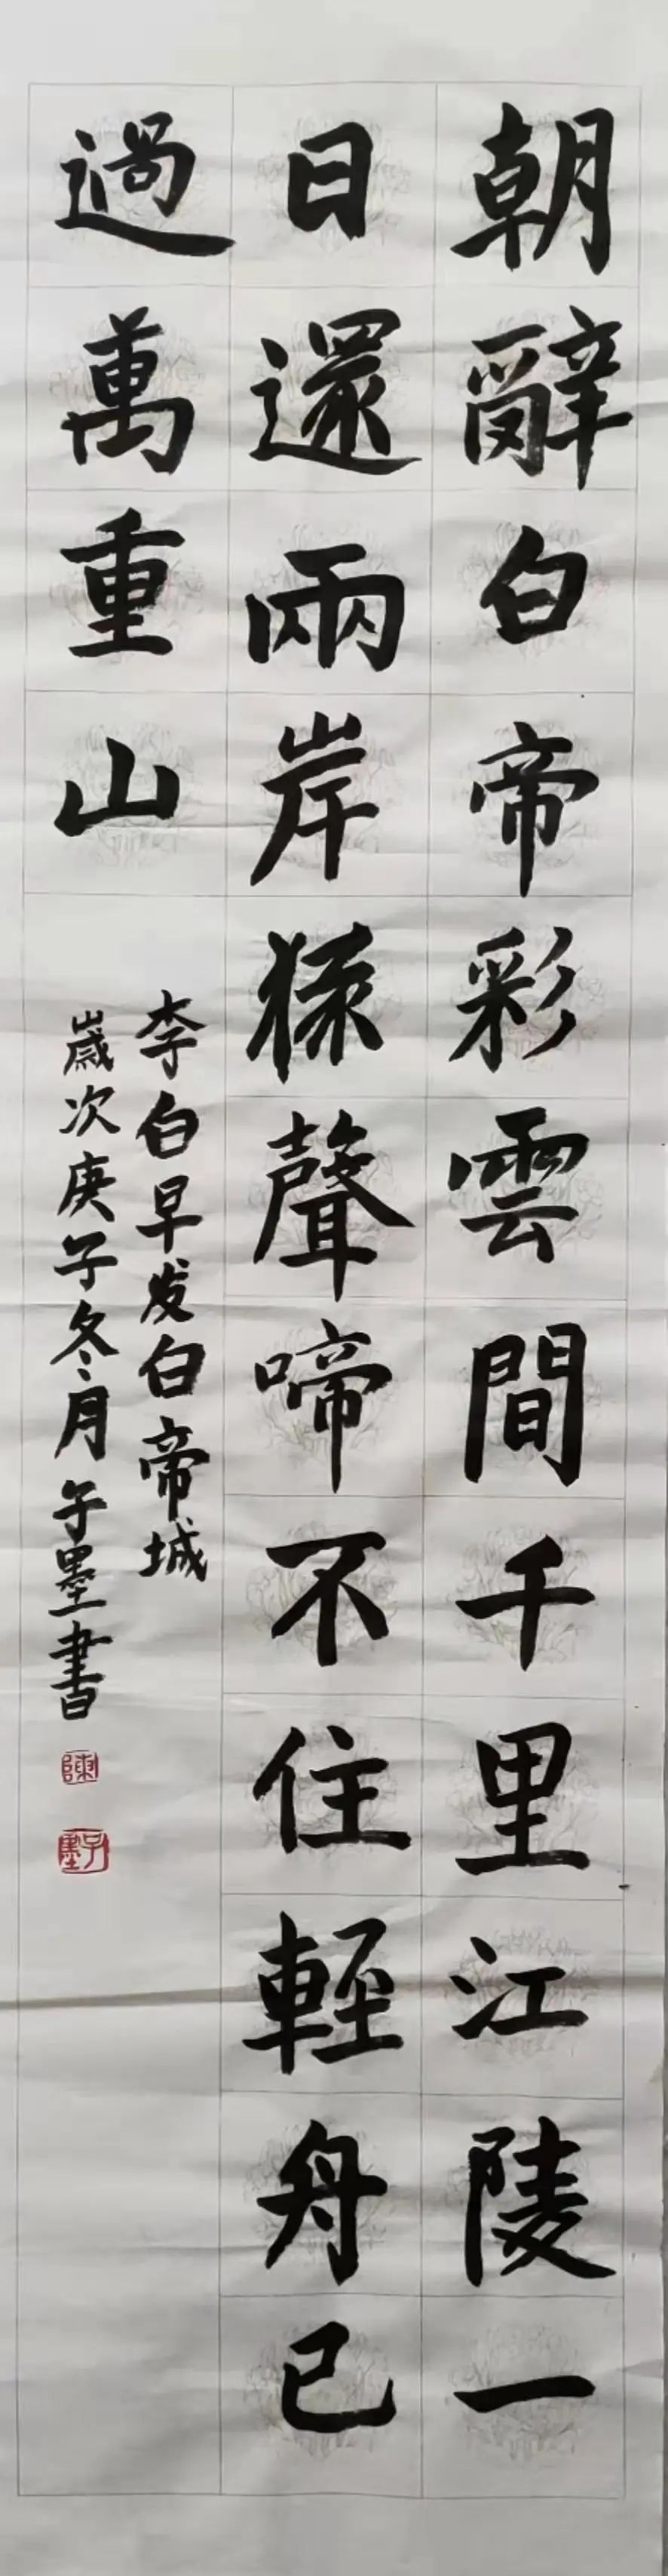 朝辭白帝彩雲間千里江陵一
日還兩岸猿聲啼不住輕舟已
過萬重山
李白早发白帝城
歲次庚子冬月子墨書
陳
子墨